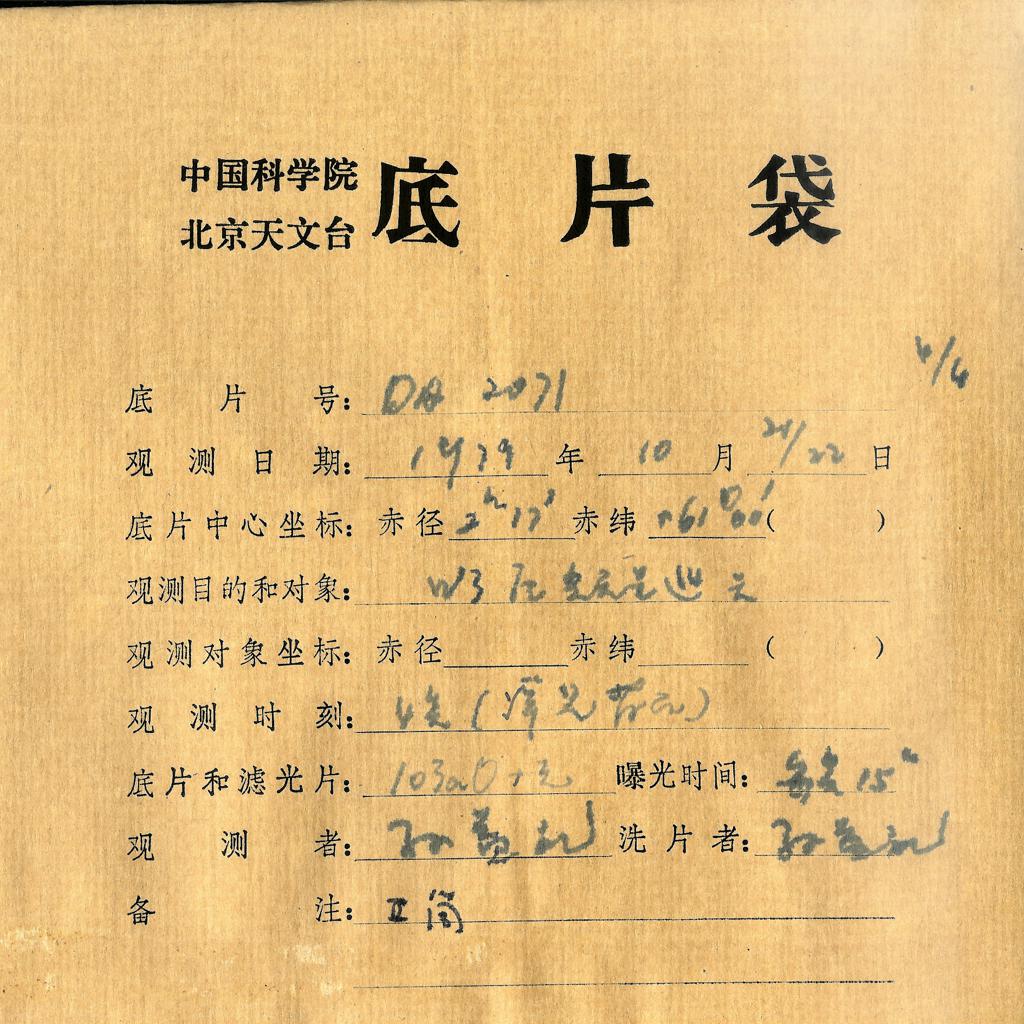 中国科学院
北京天文台
底片袋
4/4
底片号: DA 2071
观测日期: 1979年10月21/22日
底片中心坐标: 赤径2h17' 赤纬+61°00'( )
观测目的和对象: W3 巡天
观测对象坐标: 赤径 赤纬 ( )
观测时刻:
底片和滤光片: 103aO+无 曝光时间: 15
观测者: 孙益礼 洗片者: 孙益礼
备注: II 筒